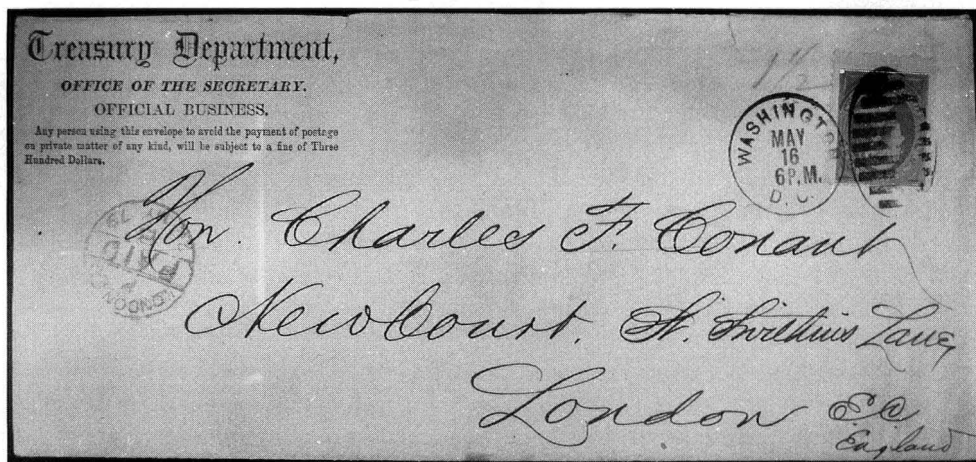 Treasury Department,
OFFICE OF THE SECRETARY.
OFFICIAL BUSINESS.
Any person using this envelope to avoid the payment of postage
on private matter of any kind, will be subject to a fine of Three
Hundred Dollars.
WASHINGTON
MAY
16
6 P.M.
D.C.
Hon. Charles F. Conant
New Court. St. Swithins Lane,
London EC
England
LONDON
PAID
79